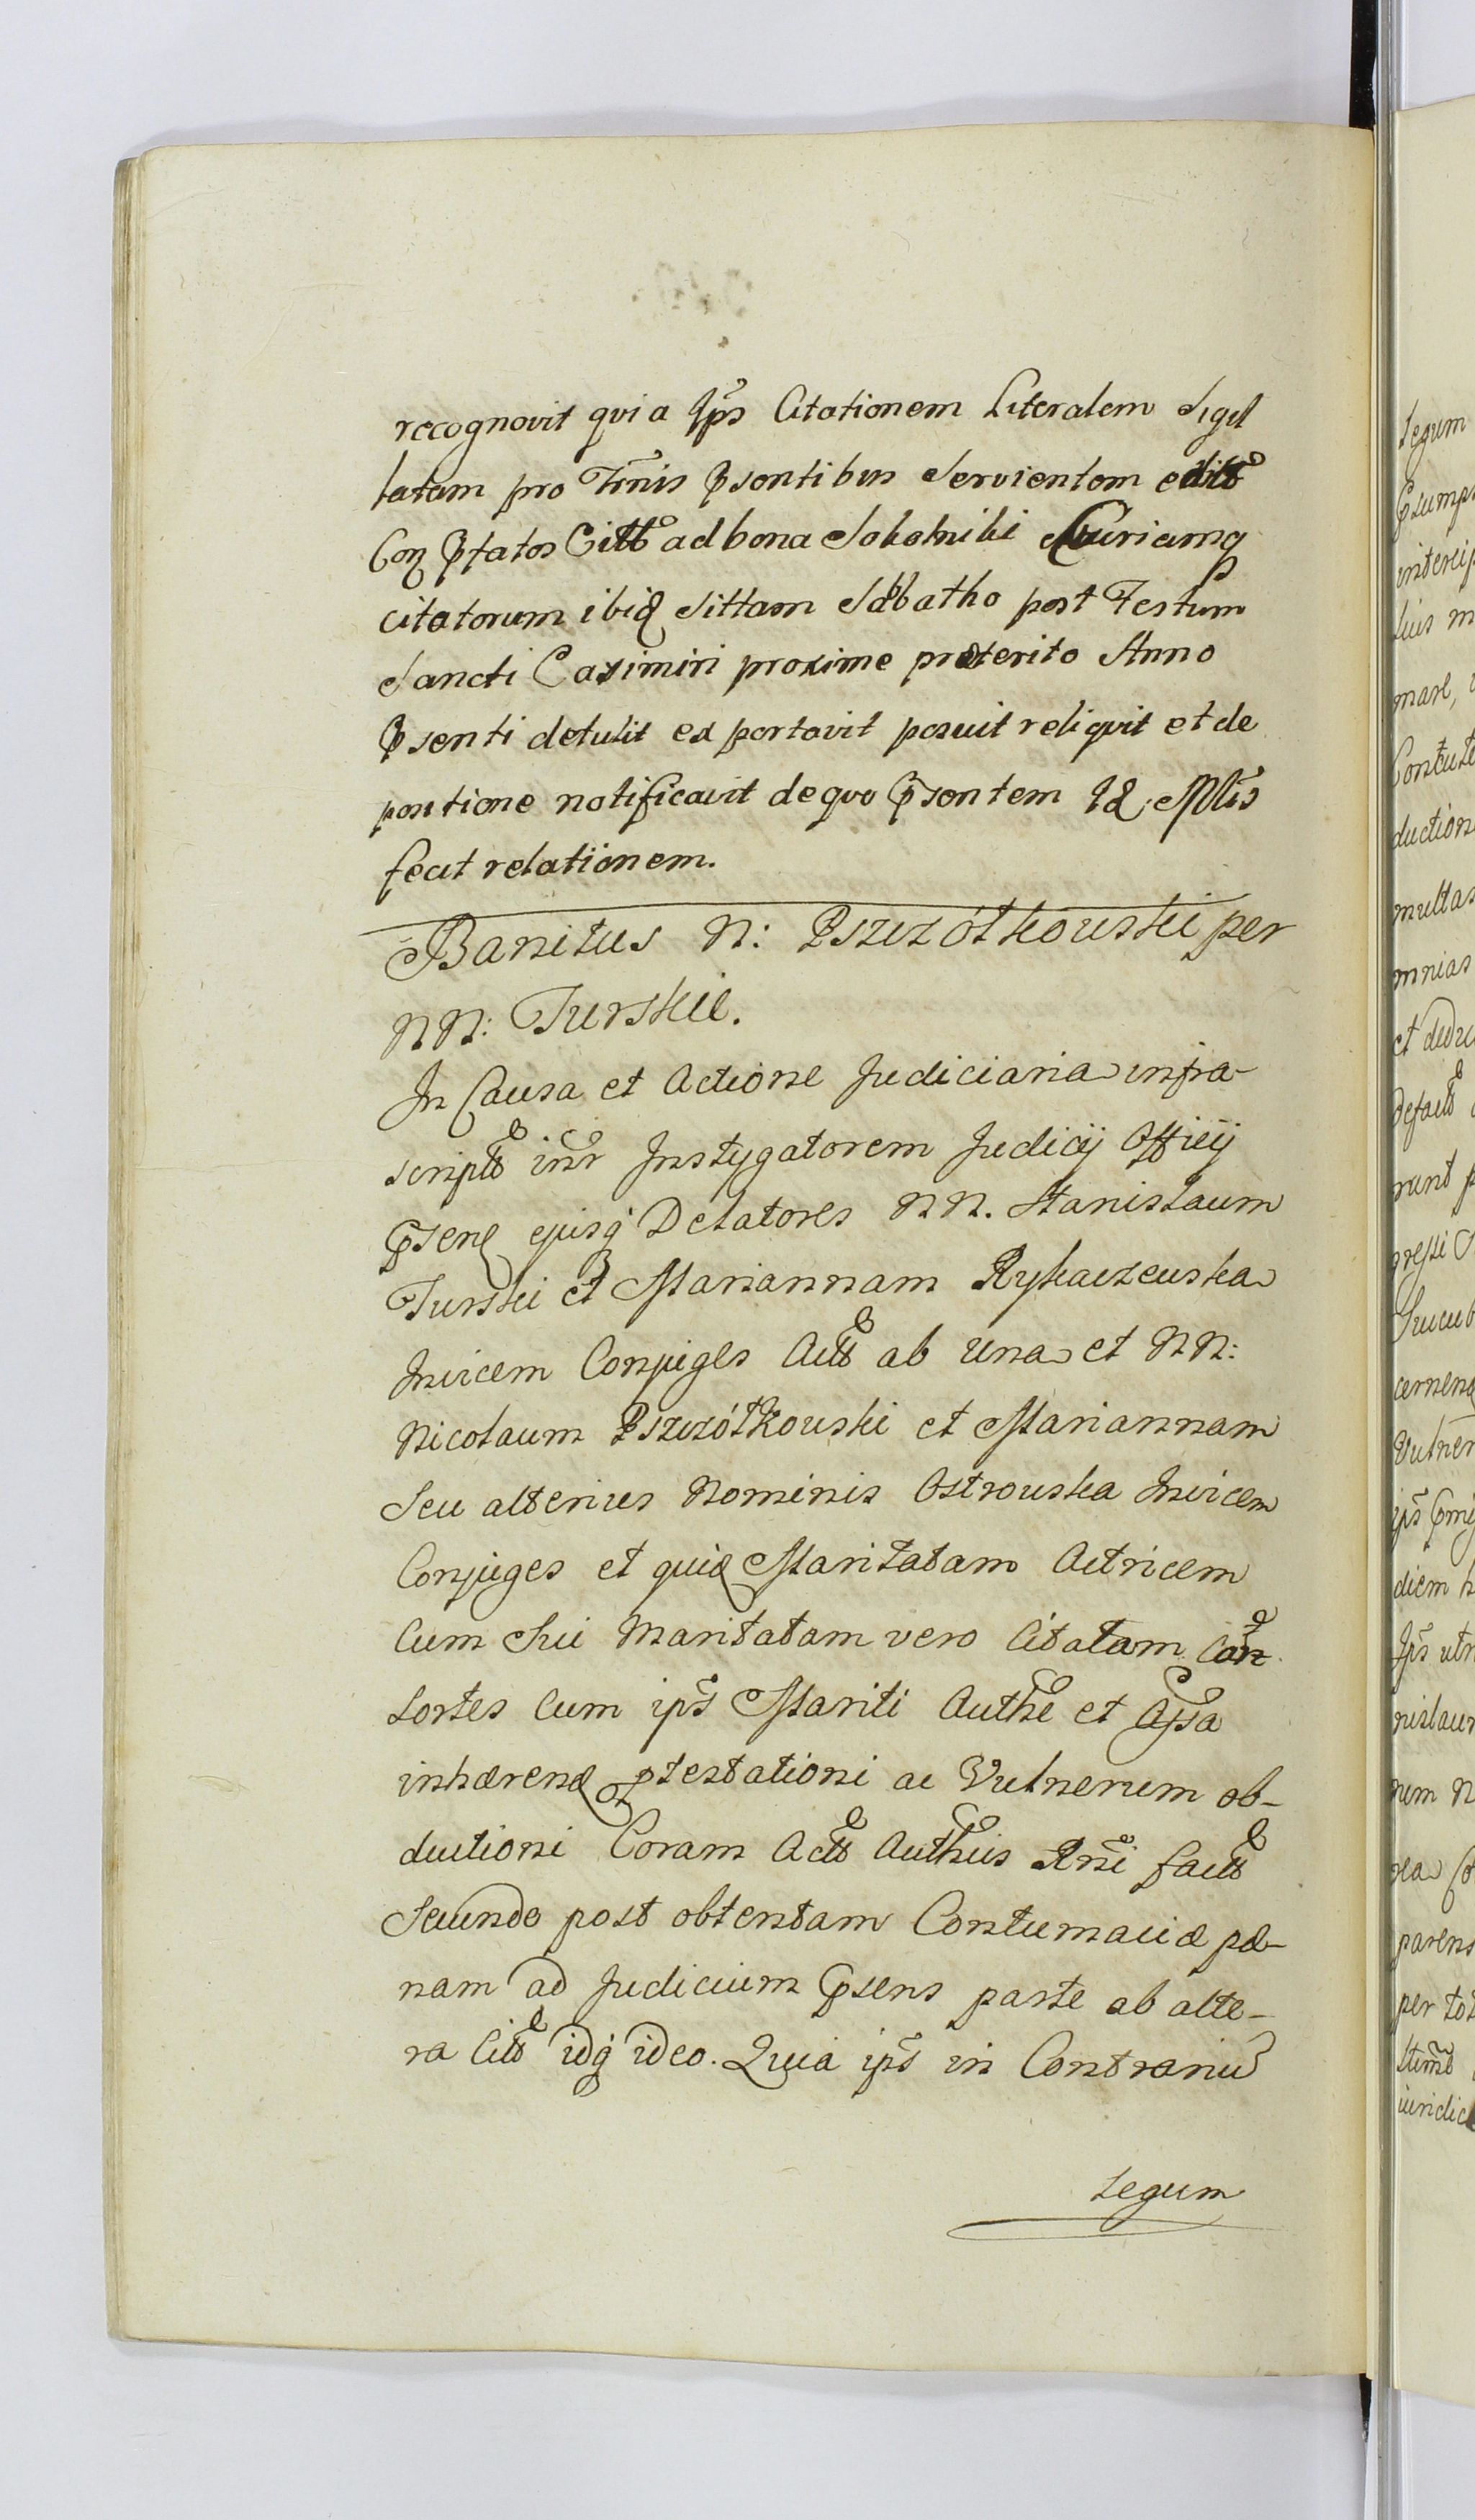 recognovit qvia Ips Citationem Literalem Sigil
latam pro Trnis Psentibus Servientem editt
Con Pfatos Citt ad bona Sokolniki Curiamq
citatorum ibiq Sittam Sabbatho post Festum
Sancti Casimiri proxime præterito Anno
Psenti detulit ex portavit posuit reliqvit et de
positione notificavit de qvo Psentem Id. Mlis
fecit relationem.
Banitus N: Pszczółkowski per
NN: Turskie.
In Causa et Actione Judiciaria infra-
scriptt intr Instygatorem Judicij Officij
Psenq ejusq Delatores NN. Stanisłaum
Turski et Mariannam Rykaczewska
Invicem Conjuges Actt ab una et NN:
Nicolaum Pszczółkowski et Mariannam
Seu alterius Nominis Ostrowska Invicem
Conjuges et quid Maritatam Actricem
Cum Sui Maritatam vero Citatam Con
Sortes Cum ips Mariti Authe et Assa
inhærend ptestationi ac Vulnerum ob-
ductioni Coram Actt Authcis Rni factt
Secundo post obtentam Contumaciæ pæ-
nam ad Judicium Psens parte ab alte-
ra Citt idq ideo. Quia ips in Contrariu
Legum
Legum
mare,
multas
et
diem
per